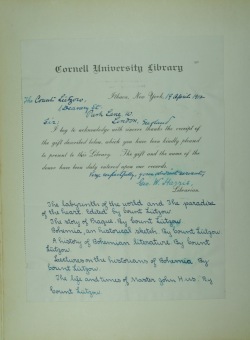 Cornell University Library
Ithaca, New York, 19 April 1910
The Count Lützow,
Park Lane W.
London, England
Sir:
I beg to acknowledge with sincere thanks the receipt of
the gift described below which you have been kindly pleased
to present to this Library. The gift and the name of the
donor have been duly entered upon our records.
Very respectfully, your obedient servant,
Geo. W. Harris,
Librarian.
The labyrinth of the world and The paradise
of the heart. Edited by Count Lützow
The story of Prague By Count Lutzow
Bohemia, an historical sketch By Count Lutzow
A history of Bohemian literature By Count
Lutzow
Lectures on the historians of Bohemia By
Count Lutzow
The life and times of Master John Hus. By
Count Lutzow